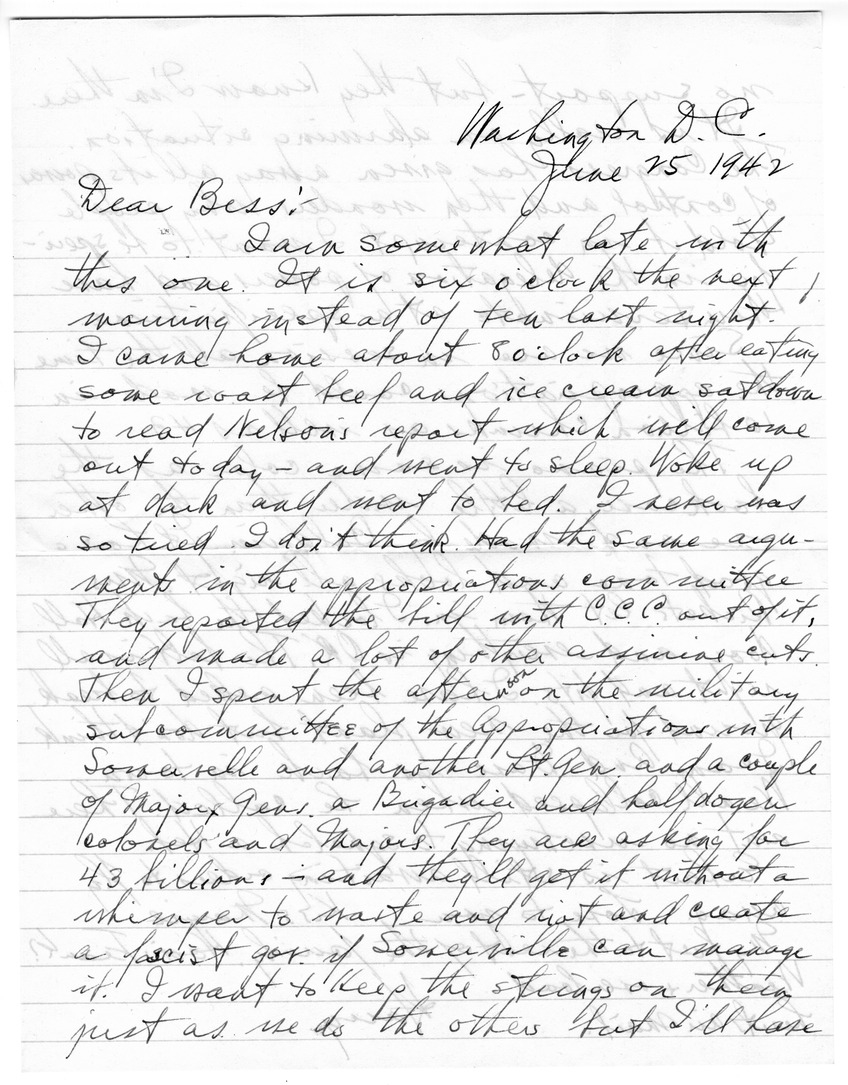 Washington D.C.
June 25 1942
Dear Bess:-
I am somewhat late with
this one. It is six o'clock the next
morning instead of ten last night.
I came home about 8 o'clock after eating
some roast beef and ice cream sat down
to read Nelson's report which will come
out today - and went to sleep. Woke up
at dark and went to bed. I never was
so tired I don't think. Had the same argu-
ments in the appropriations committee
They reported the bill with C.C.C. out of it,
and made a lot of other assinine cuts.
Then I spent the afternoon on the military
subcommittee of the Appropriations with
Somervelle and another Lt. Gen. and a couple
of Major Gens. a Brigadier and half dozen
colonels and Majors. They are asking for
43 billions - and they'll get it without a
whimper to waste and riot and create
a fascist gov. if Somerville can manage
it. I want to keep the strings on them
just as we do the others but I'll have